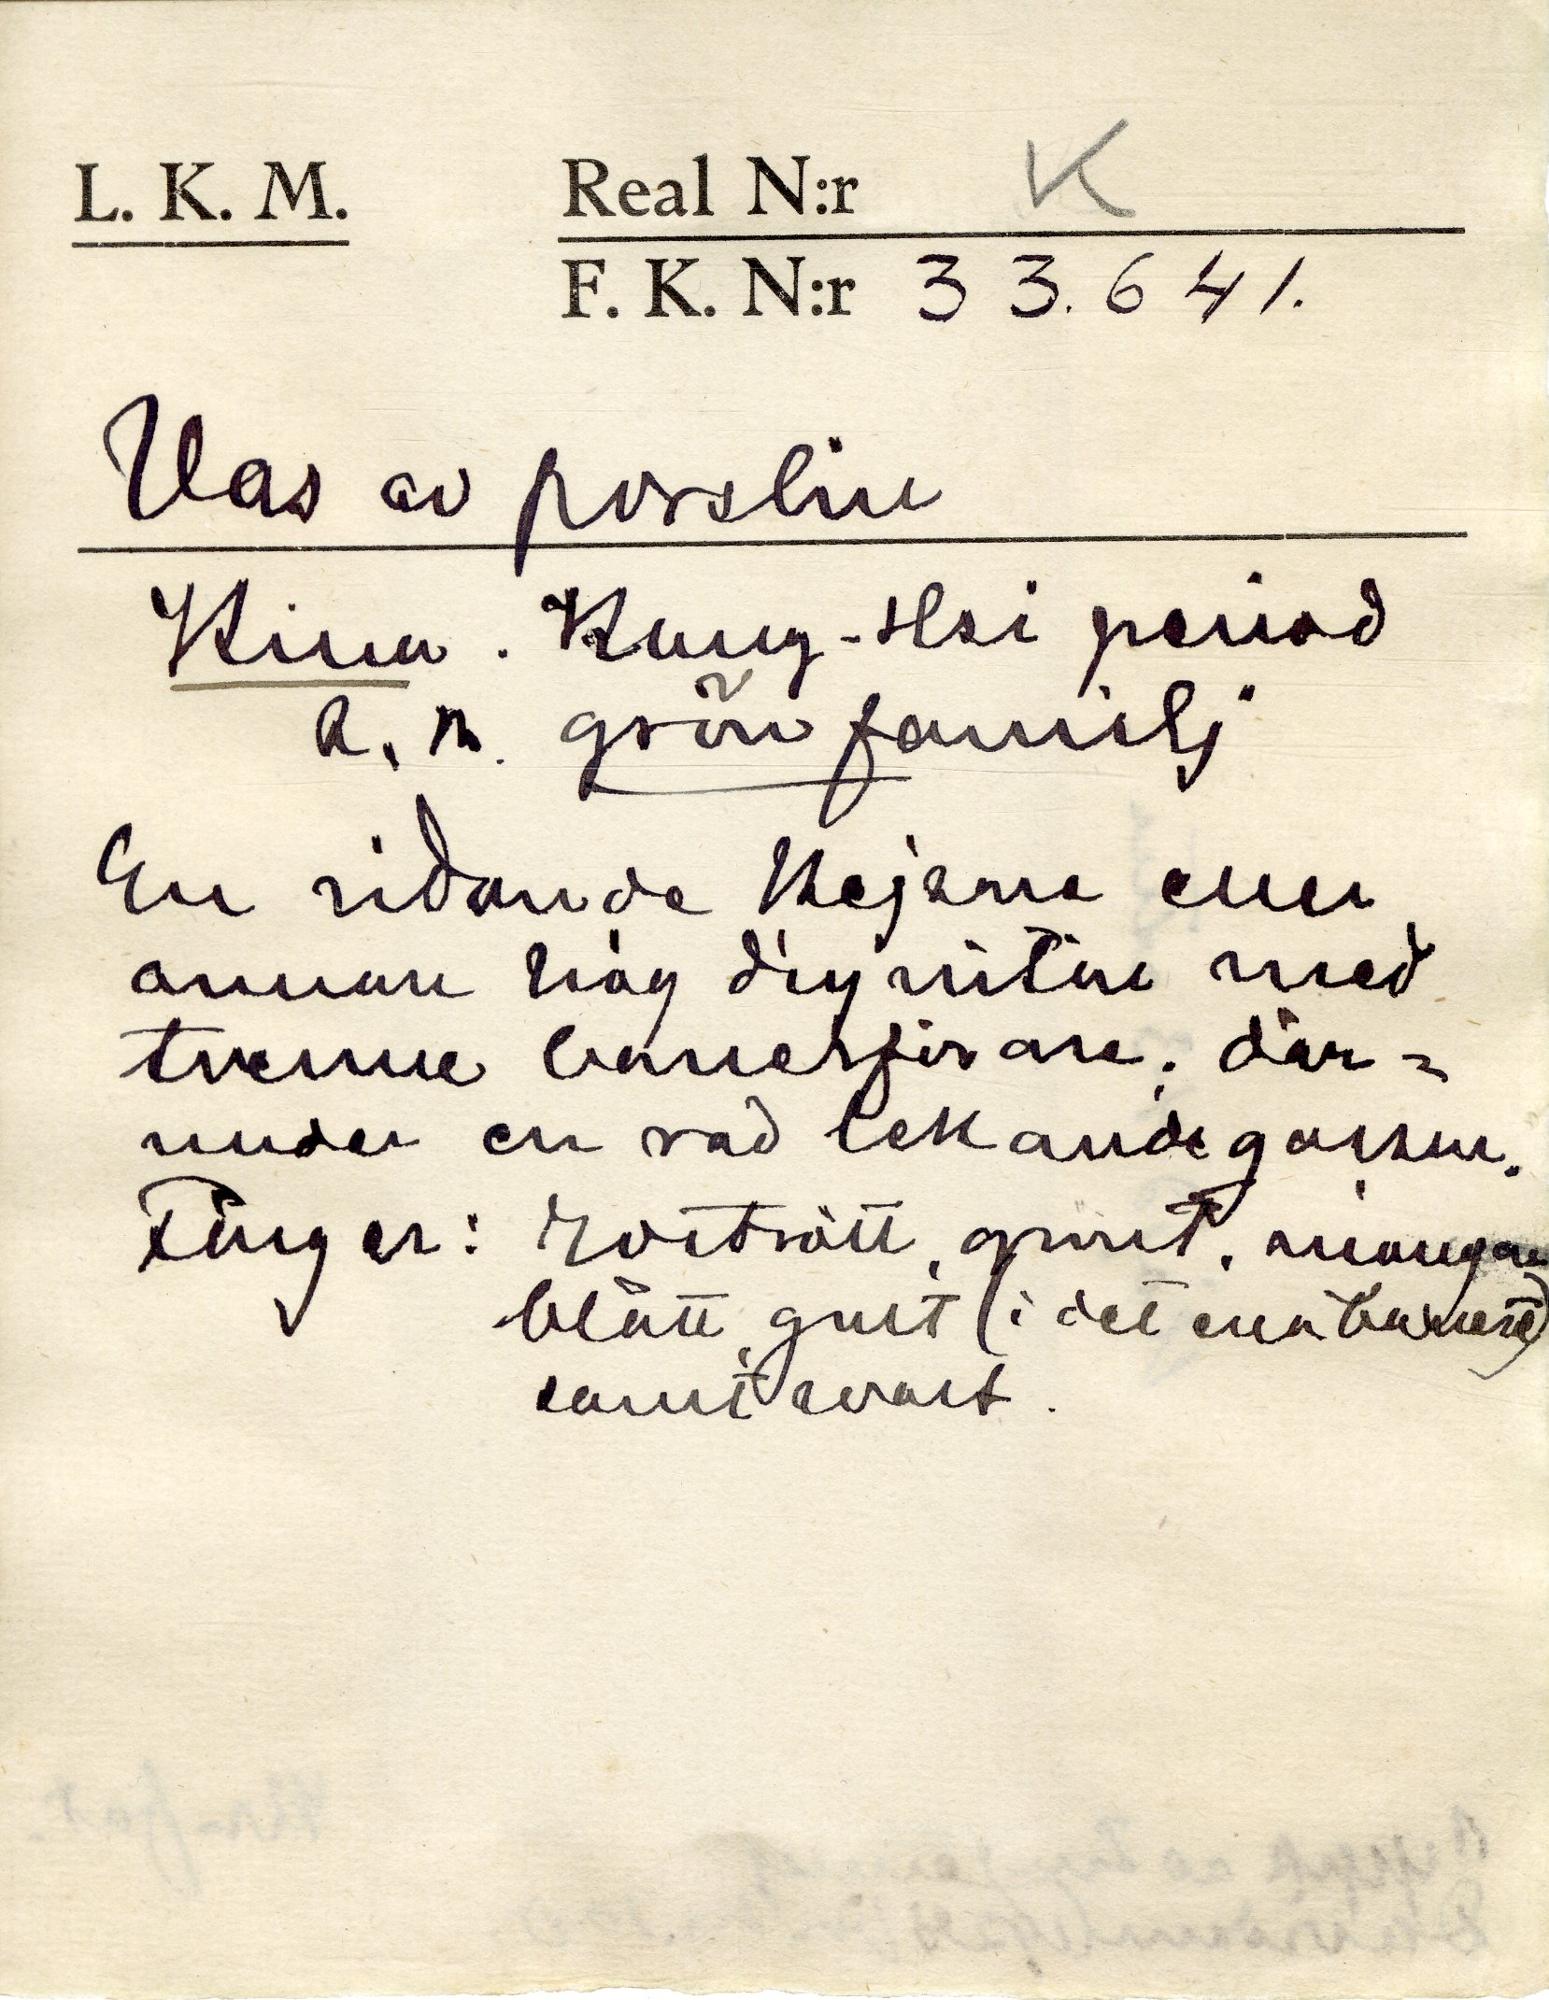 L. K. M.
Real N:r K
F. K. N:r 33.641.
Vas av porslin
Kina. Kang-Hsi period
s. k. grön familj
En ridande Kejsare eller
annan hög dignitär med
trenne banerförare; där-
under en rad lekande gossar.
Färger: rostrött, grönt, mangan
blått, gult (i det ena baneret)
samt svart.